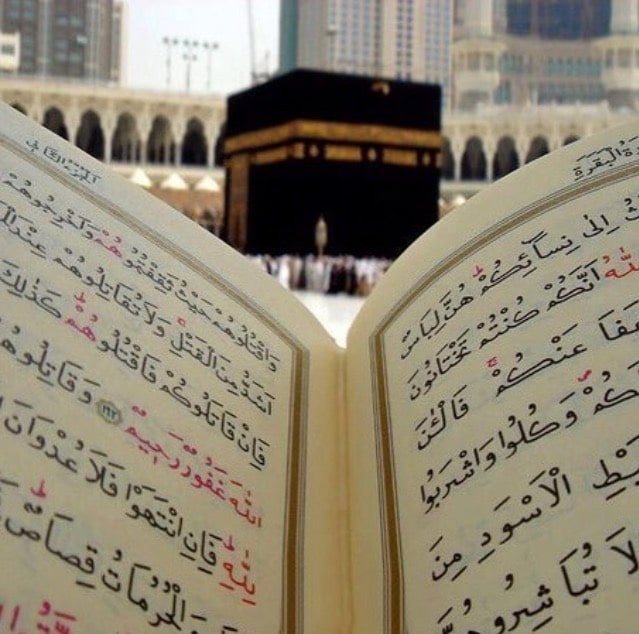 الْبَقَرَةِ
اِلٰى نِسَٓائِكُمْ هُنَّ لِبَاسٌ
اللّٰهُ اَنَّكُمْ كُنْتُمْ تَخْتَانُونَ
عَنْكُمْ فَالْئٰنَ
وَكُلُوا وَاشْرَبُوا
الْاَسْوَدِ مِنَ
لَا تُبَاشِرُوهُنَّ
الجزء الثانى
وَاقْتُلُوهُمْ حَيْثُ ثَقِفْتُمُوهُمْ وَاَخْرِجُوهُمْ
اَشَدُّ مِنَ الْقَتْلِ وَلَا تُقَاتِلُوهُمْ عِنْدَ
فَاِنْ قَاتَلُوكُمْ فَاقْتُلُوهُمْ كَذٰلِكَ
اللّٰهَ غَفُورٌ رَحِيمٌ ﴿١٩٢﴾ وَقَاتِلُوهُمْ
لِلّٰهِ فَاِنِ انْتَهَوْا فَلَا عُدْوَانَ
وَالْحُرُمَاتُ قِصَاصٌ